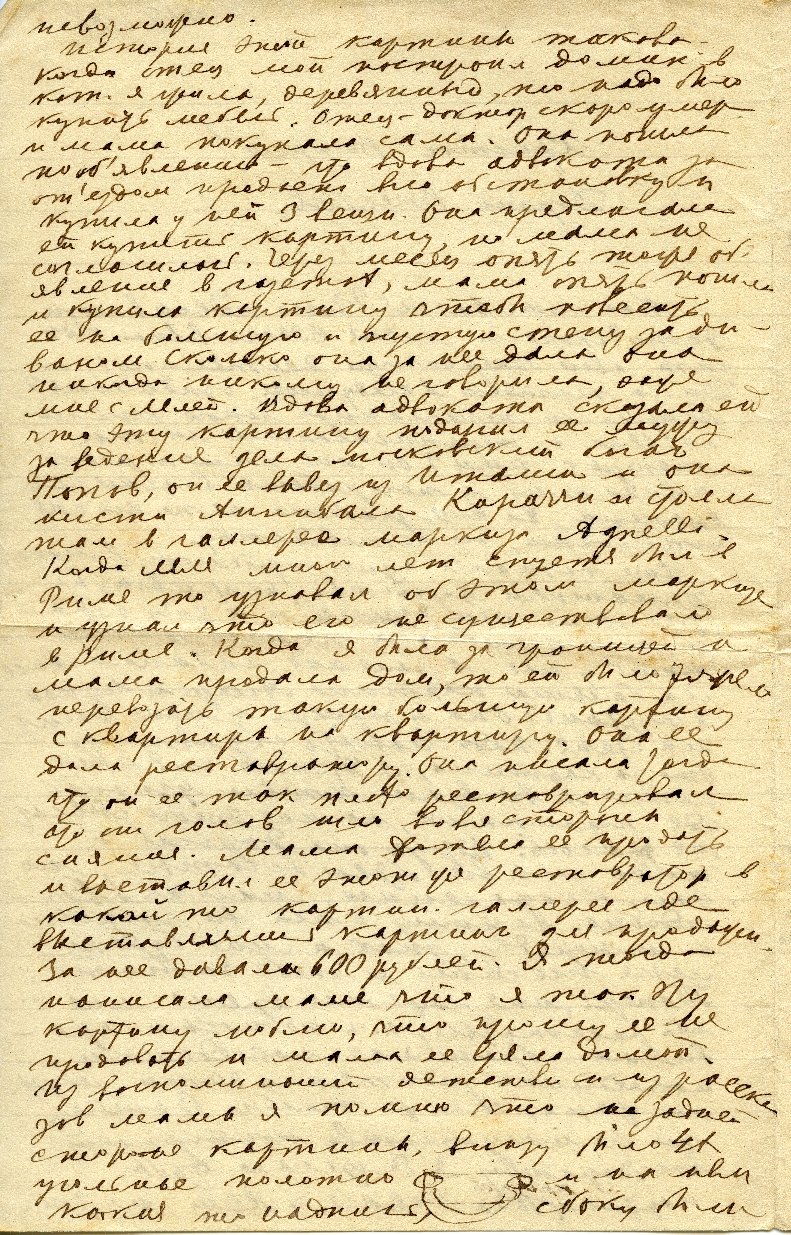 невозможно.
История этой картины такова -
когда отец мой построил домик в
кот. я жила, деревянный, то надо было
купить мебель. Отец - доктор скоро умер
и мама покупала сама. Она пошла
по об'явлению - что вдова адвоката за
от'ездом продает всю обстановку и
купила у ней 3 вещи. Она предлагала
ей купить картину, но мама не
согласилась. Через месяц опять тоже об'
явление в газетах, мама опять пошла
и купила картину чтобы повесить
ее на большую и пустую стену за ди-
ваном. Сколько она за нее дала она
никогда никому не говорила, даже
мне с
Вдова адвоката сказала ей
что эту картину подарил ее мужу
за ведение дела московский богач
Попов, он ее вывез из Италии и она
кисти Аннибала Караччи и стояла
там в галлерее маркиза Agnelli.
Когда много лет спустя был в
Риме то узнавал об этом маркизе
и узнал что его не существовало
в Риме. Когда я была за границей и
мама продала дом, то ей было тяжело
перевозить такую большую картину
с квартиры на квартиру. Она ее
дала реставратору. Она писала тогда
что он ее так плохо реставрировал
что от голов шло во все стороны
сияние. Мама хотела ее продать
и выставил ее этот же реставратор в
какой то картин. галлерее где
выставлялись картины для продажи.
За нее давали 600 рублей. Я тогда
написала маме что я так эту
картину люблю, что прошу ее не
продавать и мама ее взяла домой.
Из воспоминаний детства и из расска
зов мамы я помню что на задней
стороне картины, внизу было 4х
угольное полотно и на нем
какая то надпись, сбоку были